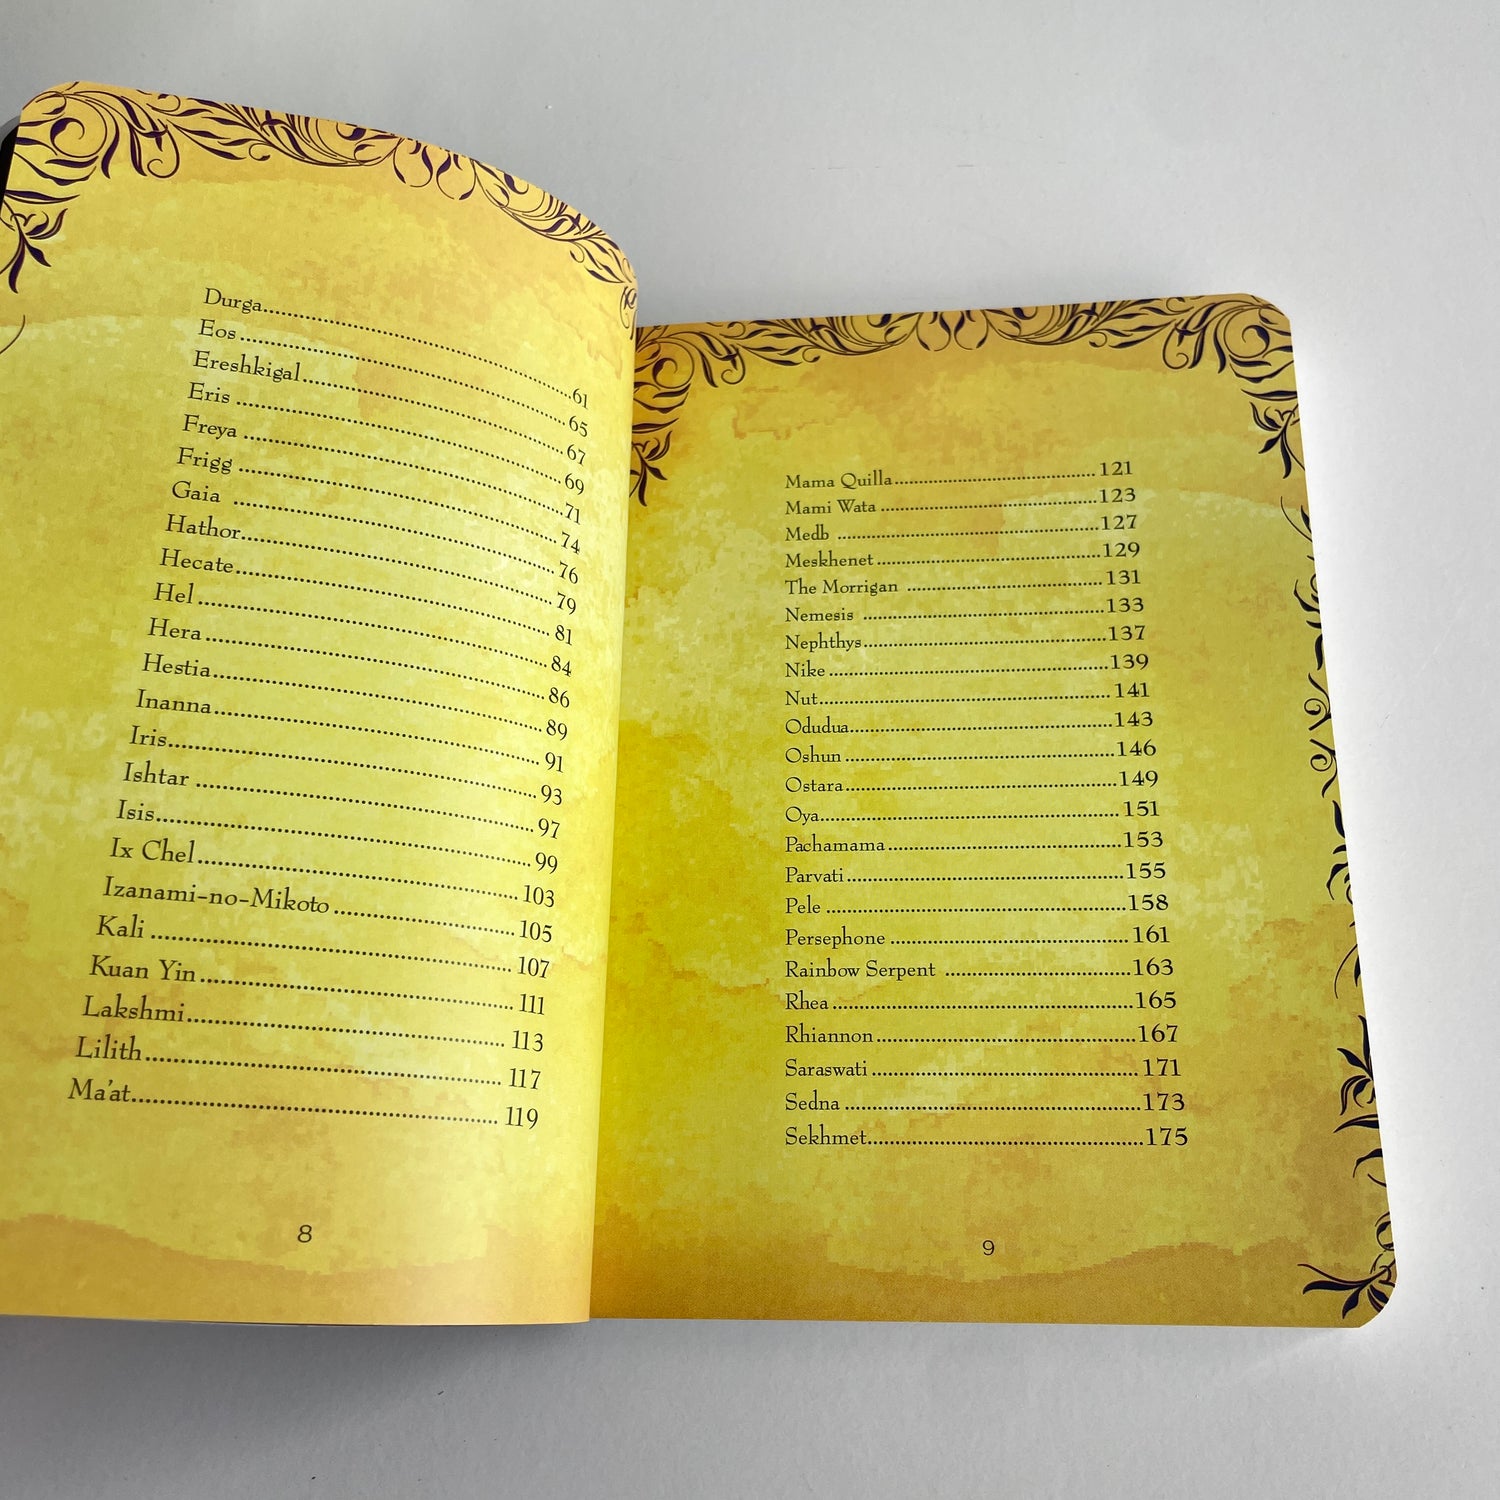 Durga..............................61
Eos..............................65
Ereshkigal..............................67
Eris..............................69
Freya..............................71
Frigg..............................74
Gaia..............................76
Hathor..............................79
Hecate..............................81
Hel..............................84
Hera..............................86
Hestia..............................89
Inanna..............................91
Iris..............................93
Ishtar..............................97
Isis..............................99
Ix Chel..............................103
Izanami-no-Mikoto..............................105
Kali..............................107
Kuan Yin..............................111
Lakshmi..............................113
Lilith..............................117
Ma'at..............................119
8
Mama Quilla..............................121
Mami Wata..............................123
Medb..............................127
Meskhenet..............................129
The Morrigan..............................131
Nemesis..............................133
Nephthys..............................137
Nike..............................139
Nut..............................141
Odudua..............................143
Oshun..............................146
Ostara..............................149
Oya..............................151
Pachamama..............................153
Parvati..............................155
Pele..............................158
Persephone..............................161
Rainbow Serpent..............................163
Rhea..............................165
Rhiannon..............................167
Saraswati..............................171
Sedna..............................173
Sekhmet..............................175
9